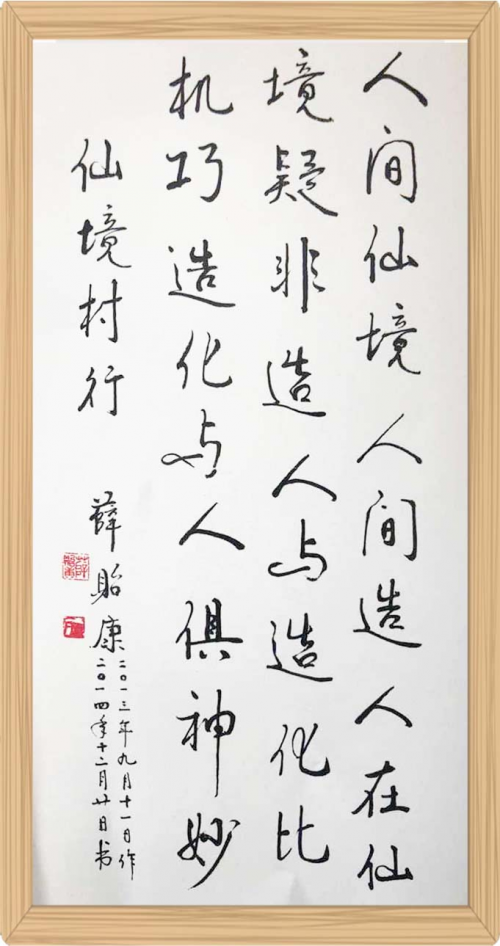 人间仙境人间造人在仙
境疑非造人与造化比
机巧造化与人俱神妙
仙境村行
薛贻康
二〇一三年九月十一日作
二〇一四年十二月廿日书